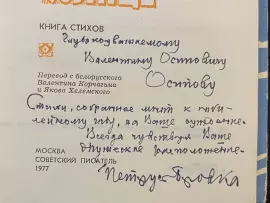 КНИГА СТИХОВ
Глубокоуважаемому
Валентину Осиповичу
Осипову
Перевод с белорусского
Валентина Корчагина
и Якова Хелемского
Стихи, собранные мной к юби-
лейному году, на Ваше
Всегда чувствуя Ваше
дружеское расположение.
МОСКВА
СОВЕТСКИЙ ПИСАТЕЛЬ
1977
Петрусь Бровка